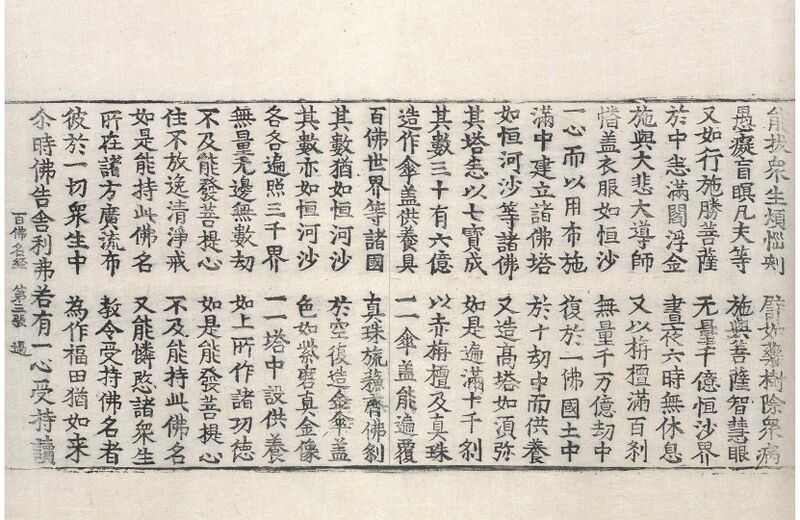 能拔衆生煩惱刺 譬如藥樹除衆病
愚癡盲瞑凡夫等 施與菩薩智慧眼
又如行施勝菩薩 无量千億恒沙界
於中悉滿閻浮金 晝夜六時無休息
施與大悲大導師 又以栴檀滿百刹
憣盖衣服如恒沙 無量千万億劫中
一心而以用布施 復於一佛國土中
滿中建立諸佛塔 於十劫中而供養
如恒河沙等諸佛 又造髙塔如湏弥
其塔悉以七寶成 如是遍滿十千刹
其數三十有六億 以赤栴檀及真珠
造作傘盖供養具 一一傘盖能遍覆
百佛世界等諸國 真珠旒蘓齊佛刹
其數猶如恒河沙 於空復造金傘盖
其數亦如恒河沙 色如紫磨真金像
各各遍照三千界 一一塔中設供養
無量无邊無數劫 如上所作諸功德
不及能發菩提心 如是能發菩提心
住不放逸清淨戒 不及能持此佛名
如是能持此佛名 又能憐愍諸衆生
所在諸方廣流布 教令受持佛名者
彼於一切衆生中 為作福田猶如来
尒時佛告舍利弗若有一心受持讀
百佛名經 第三張